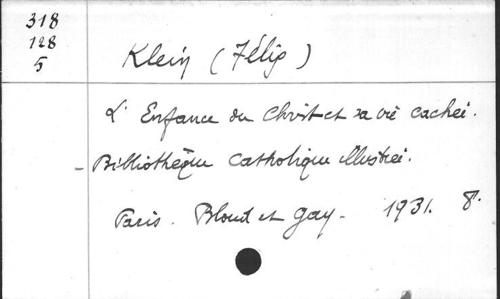 318
128
5
Klein (Félix)
L'Enfance du Christ et sa vie cachée.
- Bibliothèque catholique illustrée.
Paris. Bloud et Gay. 1931. 8°.